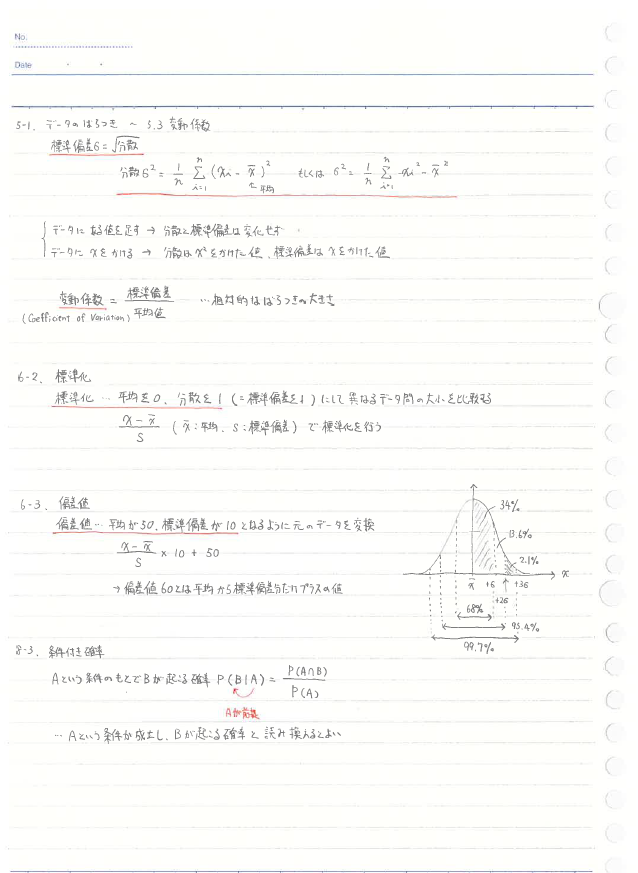 No.
Date
5-1. データのばらつき ~ 5.3 変動係数
標準偏差σ = √分散
分散σ² = 1/n Σ[i=1→n] (xi - x̄)² もしくは σ² = 1/n Σ[i=1→n] xi² - x̄²
平均
データに ある値を足す → 分散と標準偏差は変化せず
データに xをかける → 分散はx²をかけた値、標準偏差はxをかけた値
変動係数 = 標準偏差/平均値 …相対的なばらつきの大きさ
(Coefficient of Variation)
6-2. 標準化
標準化 … 平均を0、分散を1 (=標準偏差を1) にして異なるデータ間の大小を比較する
(x - x̄)/S (x̄:平均、S:標準偏差) で標準化を行う
6-3. 偏差値
偏差値 … 平均が50、標準偏差が10となるように元のデータを変換
(x - x̄)/S × 10 + 50
→ 偏差値60とは平均から標準偏差分だけプラスの値
34%
13.6%
2.1%
x̄ +σ +2σ +3σ x
68%
95.4%
99.7%
8-3. 条件付き確率
Aという条件のもとでBが起こる確率 P(B|A) = P(A∩B)/P(A)
Aが前提
… Aという条件が成立し、Bが起こる確率と読み換えるとよい